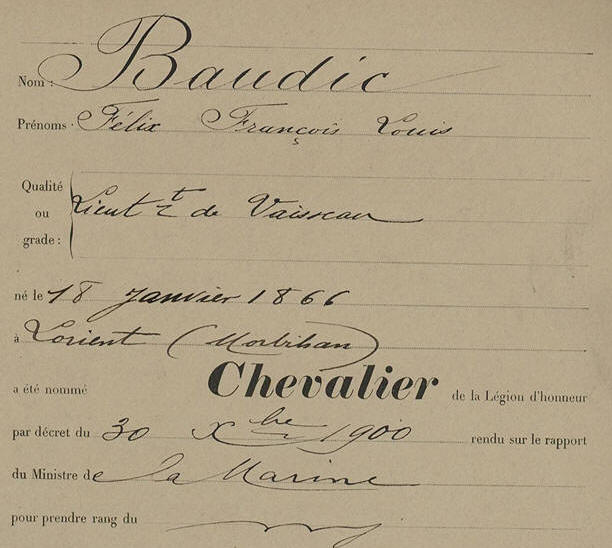 Nom : Baudic
Prénoms · Félix François Louis
Qualité ou grade : Lieut t de Vaisseau
né le 18 Janvier 1866
à Lorient (Morbihan)
a été nommé Chevalier de la Légion d'honneur
par décret du 30 Xbre 1900 rendu sur le rapport
du Ministre de la Marine
pour prendre rang du